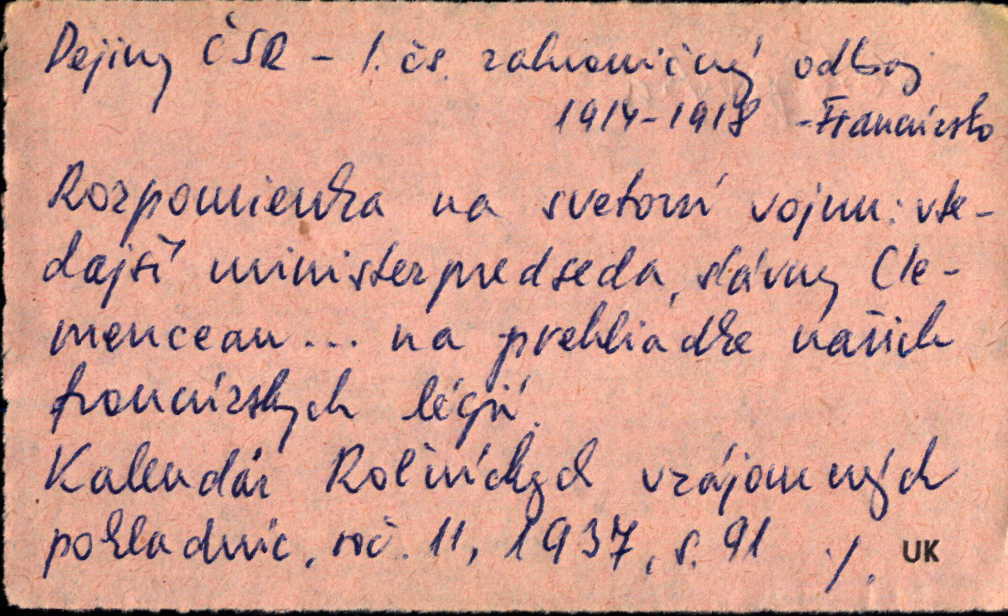 Dejiny ČSR - 1. čs. zahraničný odboj
1914-1918 - Francúzsko
Rozpomienka na svetovú vojnu: vte-
dajší ministerpredseda, slávny Cle-
menceau... na prehliadke našich
francúzskych légií.
Kalendár Roľníckych vzájomných
pokladníc, roč. 11, 1937, s. 91 ./.
UK